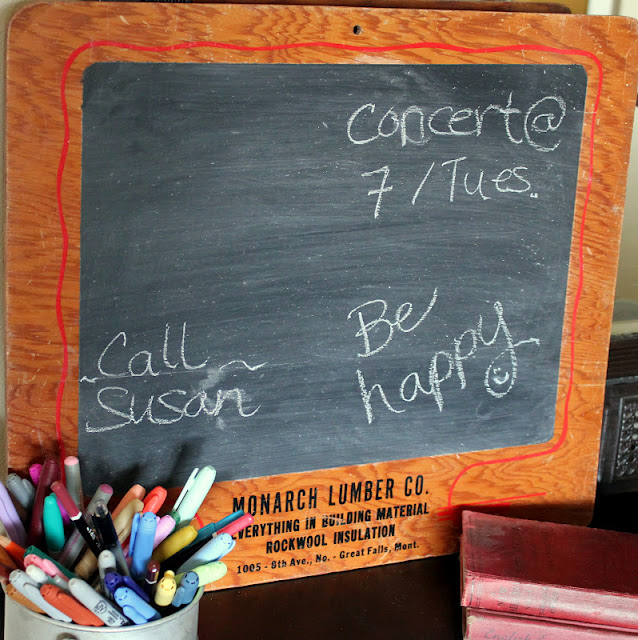 Concert@
7/Tues.
Call
Susan
Be
happy
MONARCH LUMBER CO.
EVERYTHING IN BUILDING MATERIAL
ROCKWOOL INSULATION
1005 - 8th Ave., No. - Great Falls, Mont.